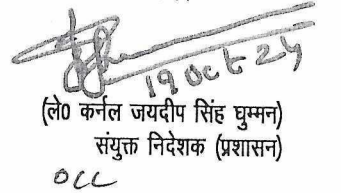 19 Oct 24
(ले0 कर्नल जयदीप सिंह घुम्मन)
संयुक्त निदेशक (प्रशासन)
OCC